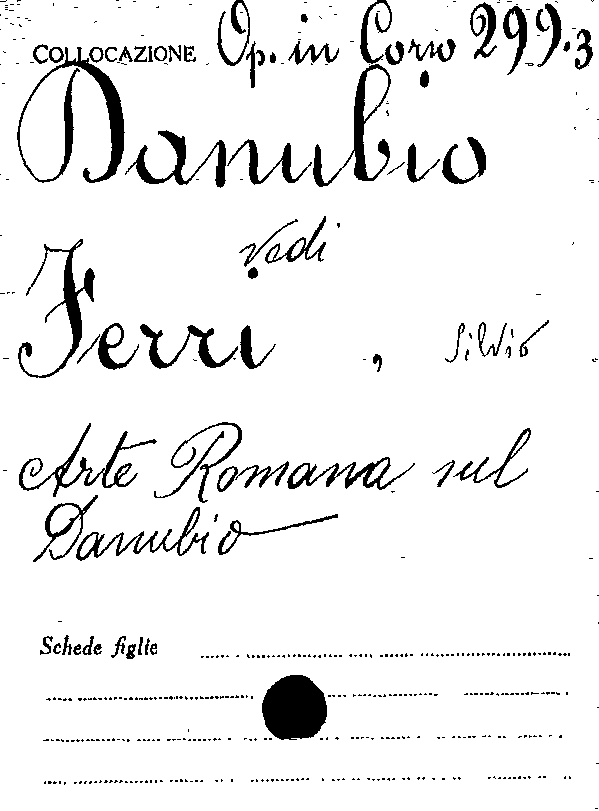 COLLOCAZIONE Op. in Corso 299.3
Danubio
vedi
Ferri, Silvio
Arte Romana sul
Danubio
Schede figlie